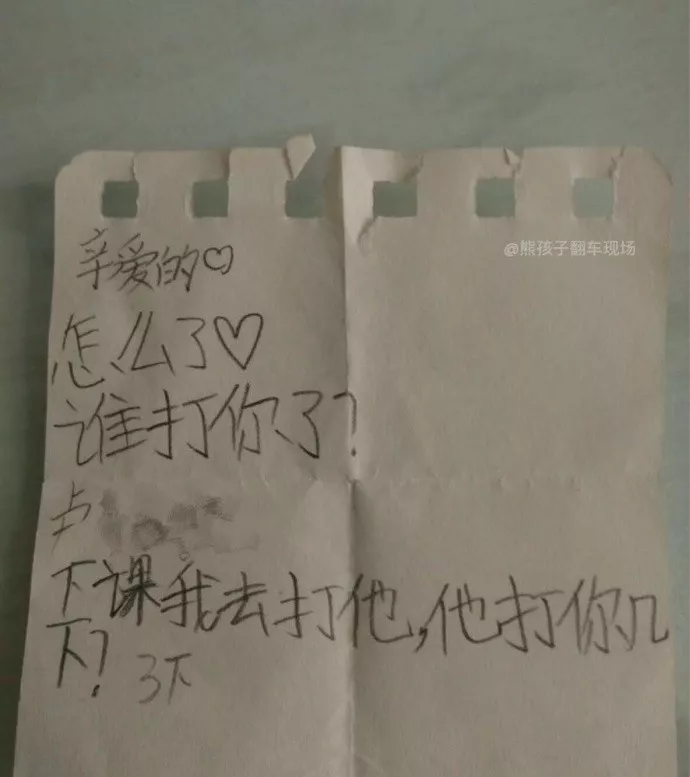 亲爱的♡
@熊孩子翻车现场
怎么了♡
谁打你了?
卢
下课我去打他,他打你几
下?
3下